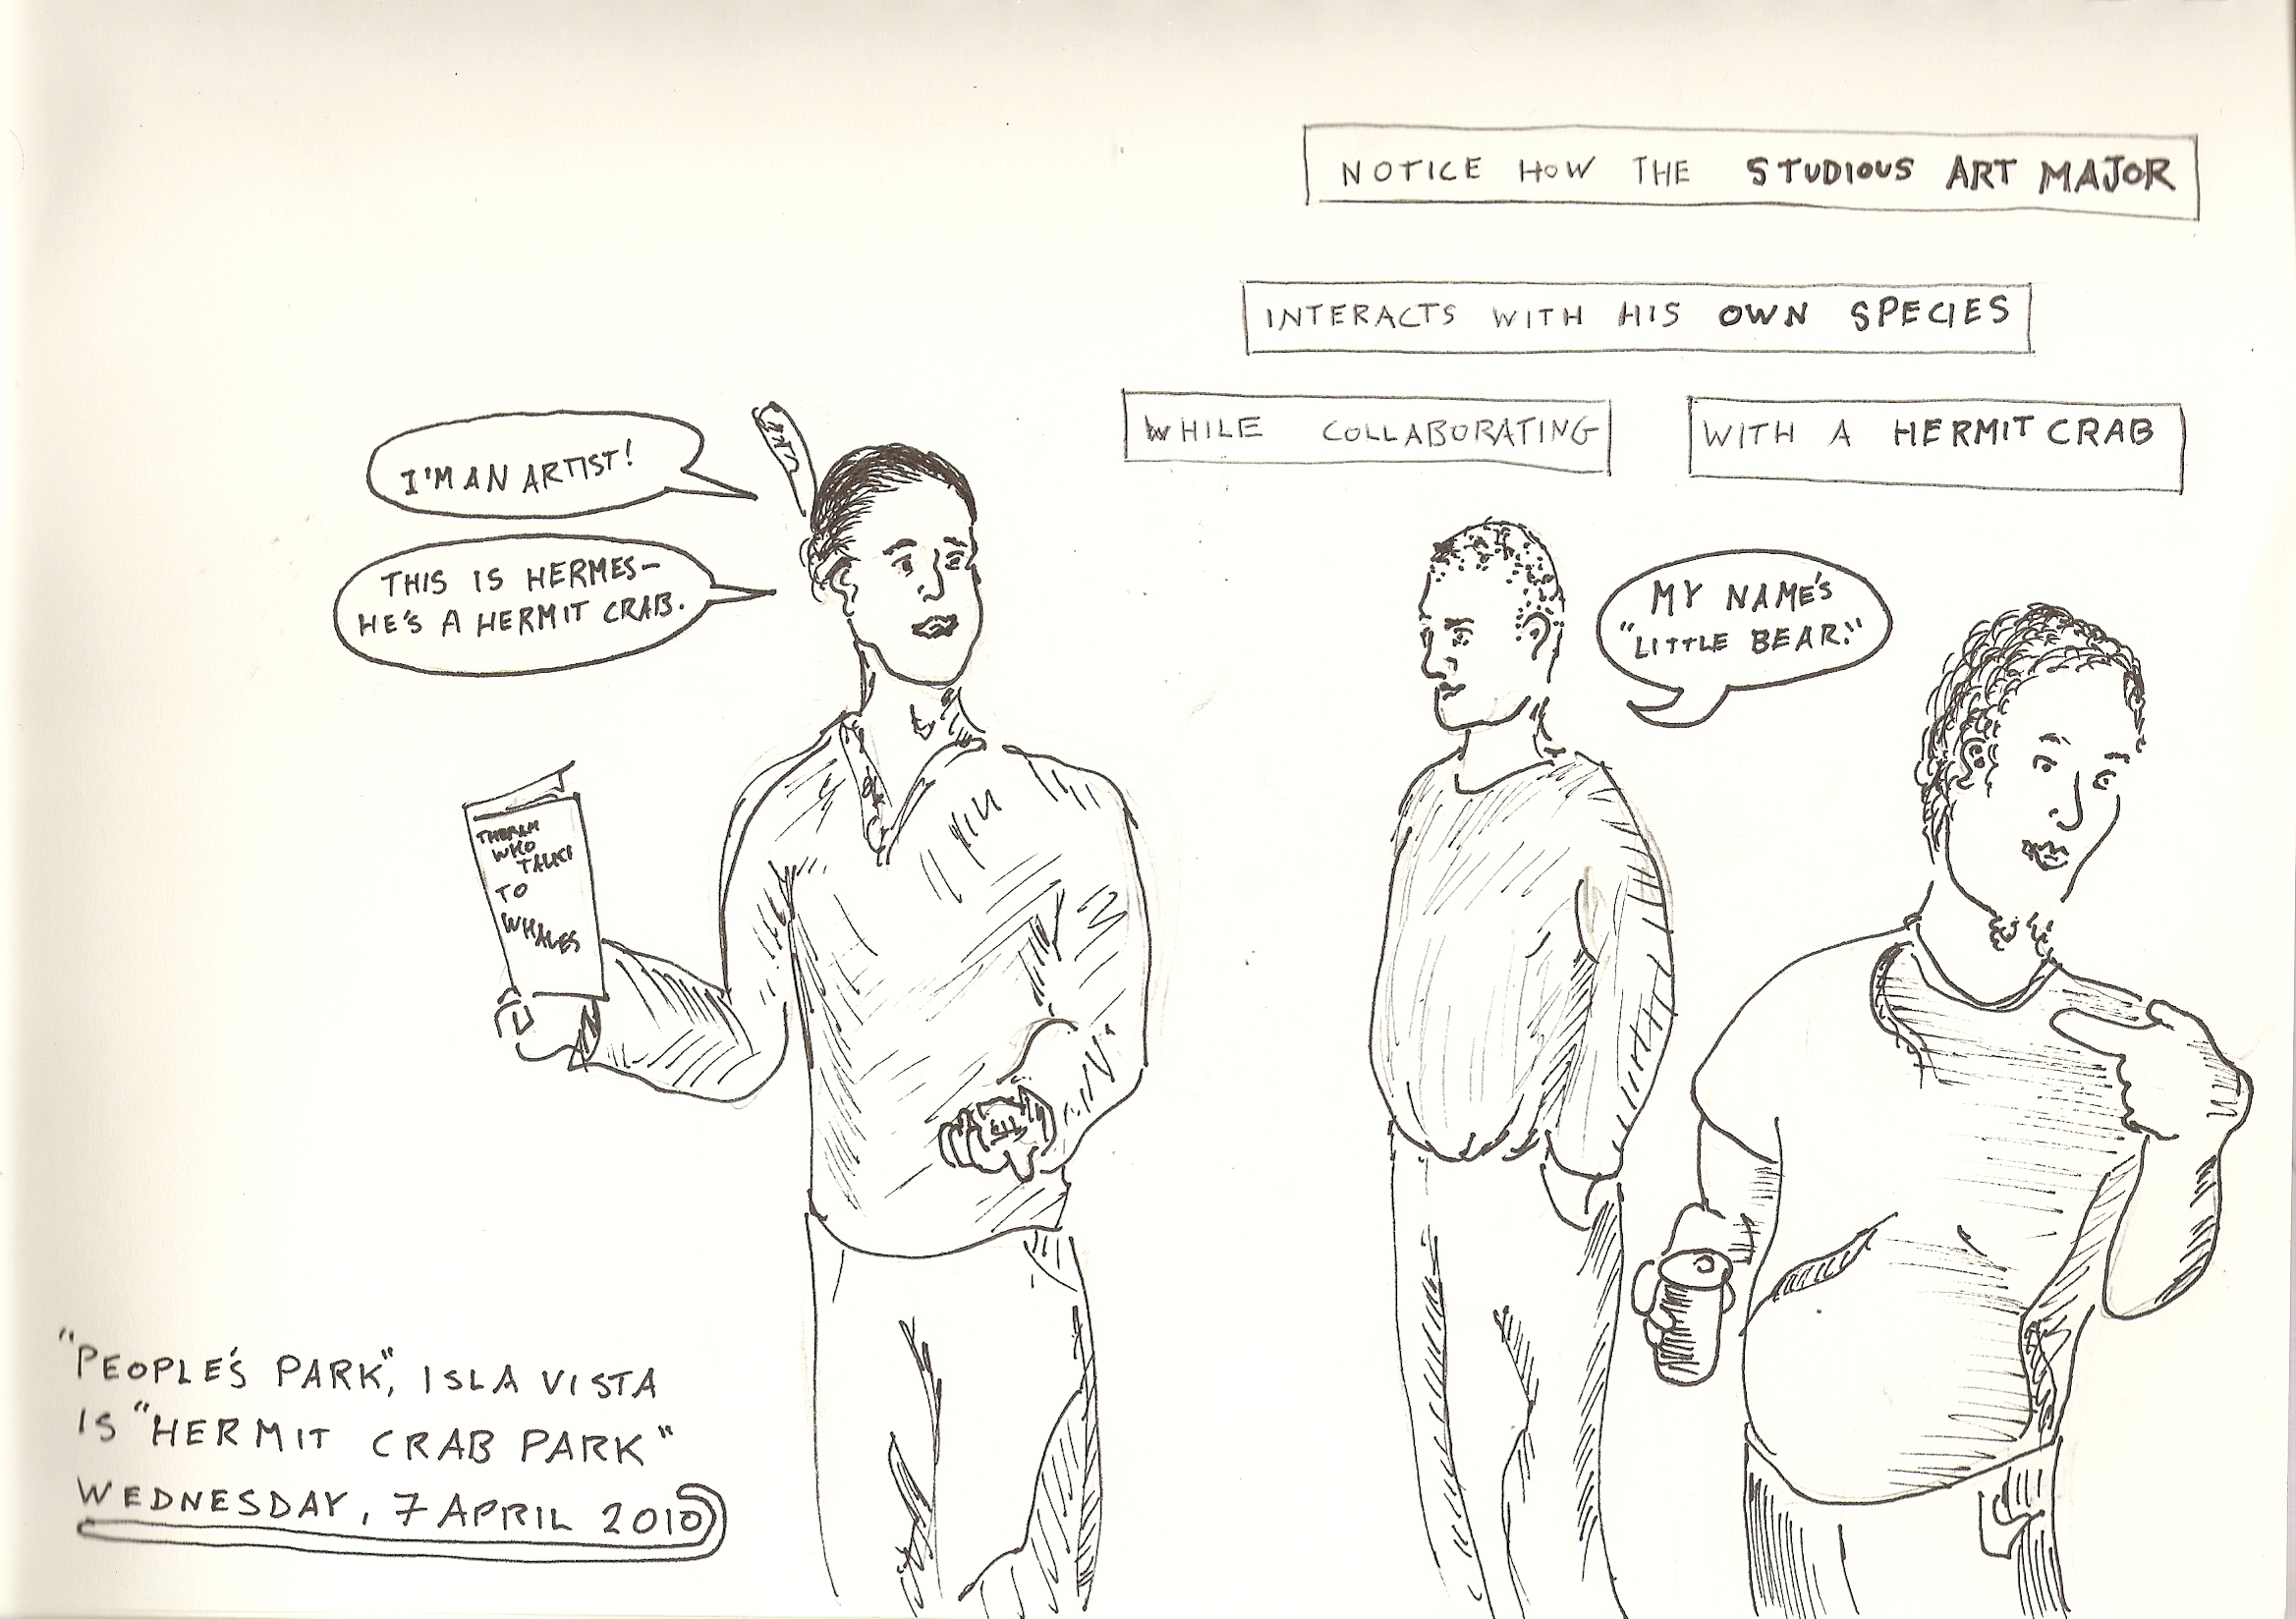 NOTICE HOW THE STUDIOUS ART MAJOR
INTERACTS WITH HIS OWN SPECIES
WHILE COLLABORATING
WITH A HERMIT CRAB
I'M AN ARTIST!
THIS IS HERMES-
HE'S A HERMIT CRAB.
MY NAME'S
"LITTLE BEAR."
WHO
TALKS
TO
WHALES
"PEOPLE'S PARK", ISLA VISTA
IS "HERMIT CRAB PARK"
WEDNESDAY, 7 APRIL 2010